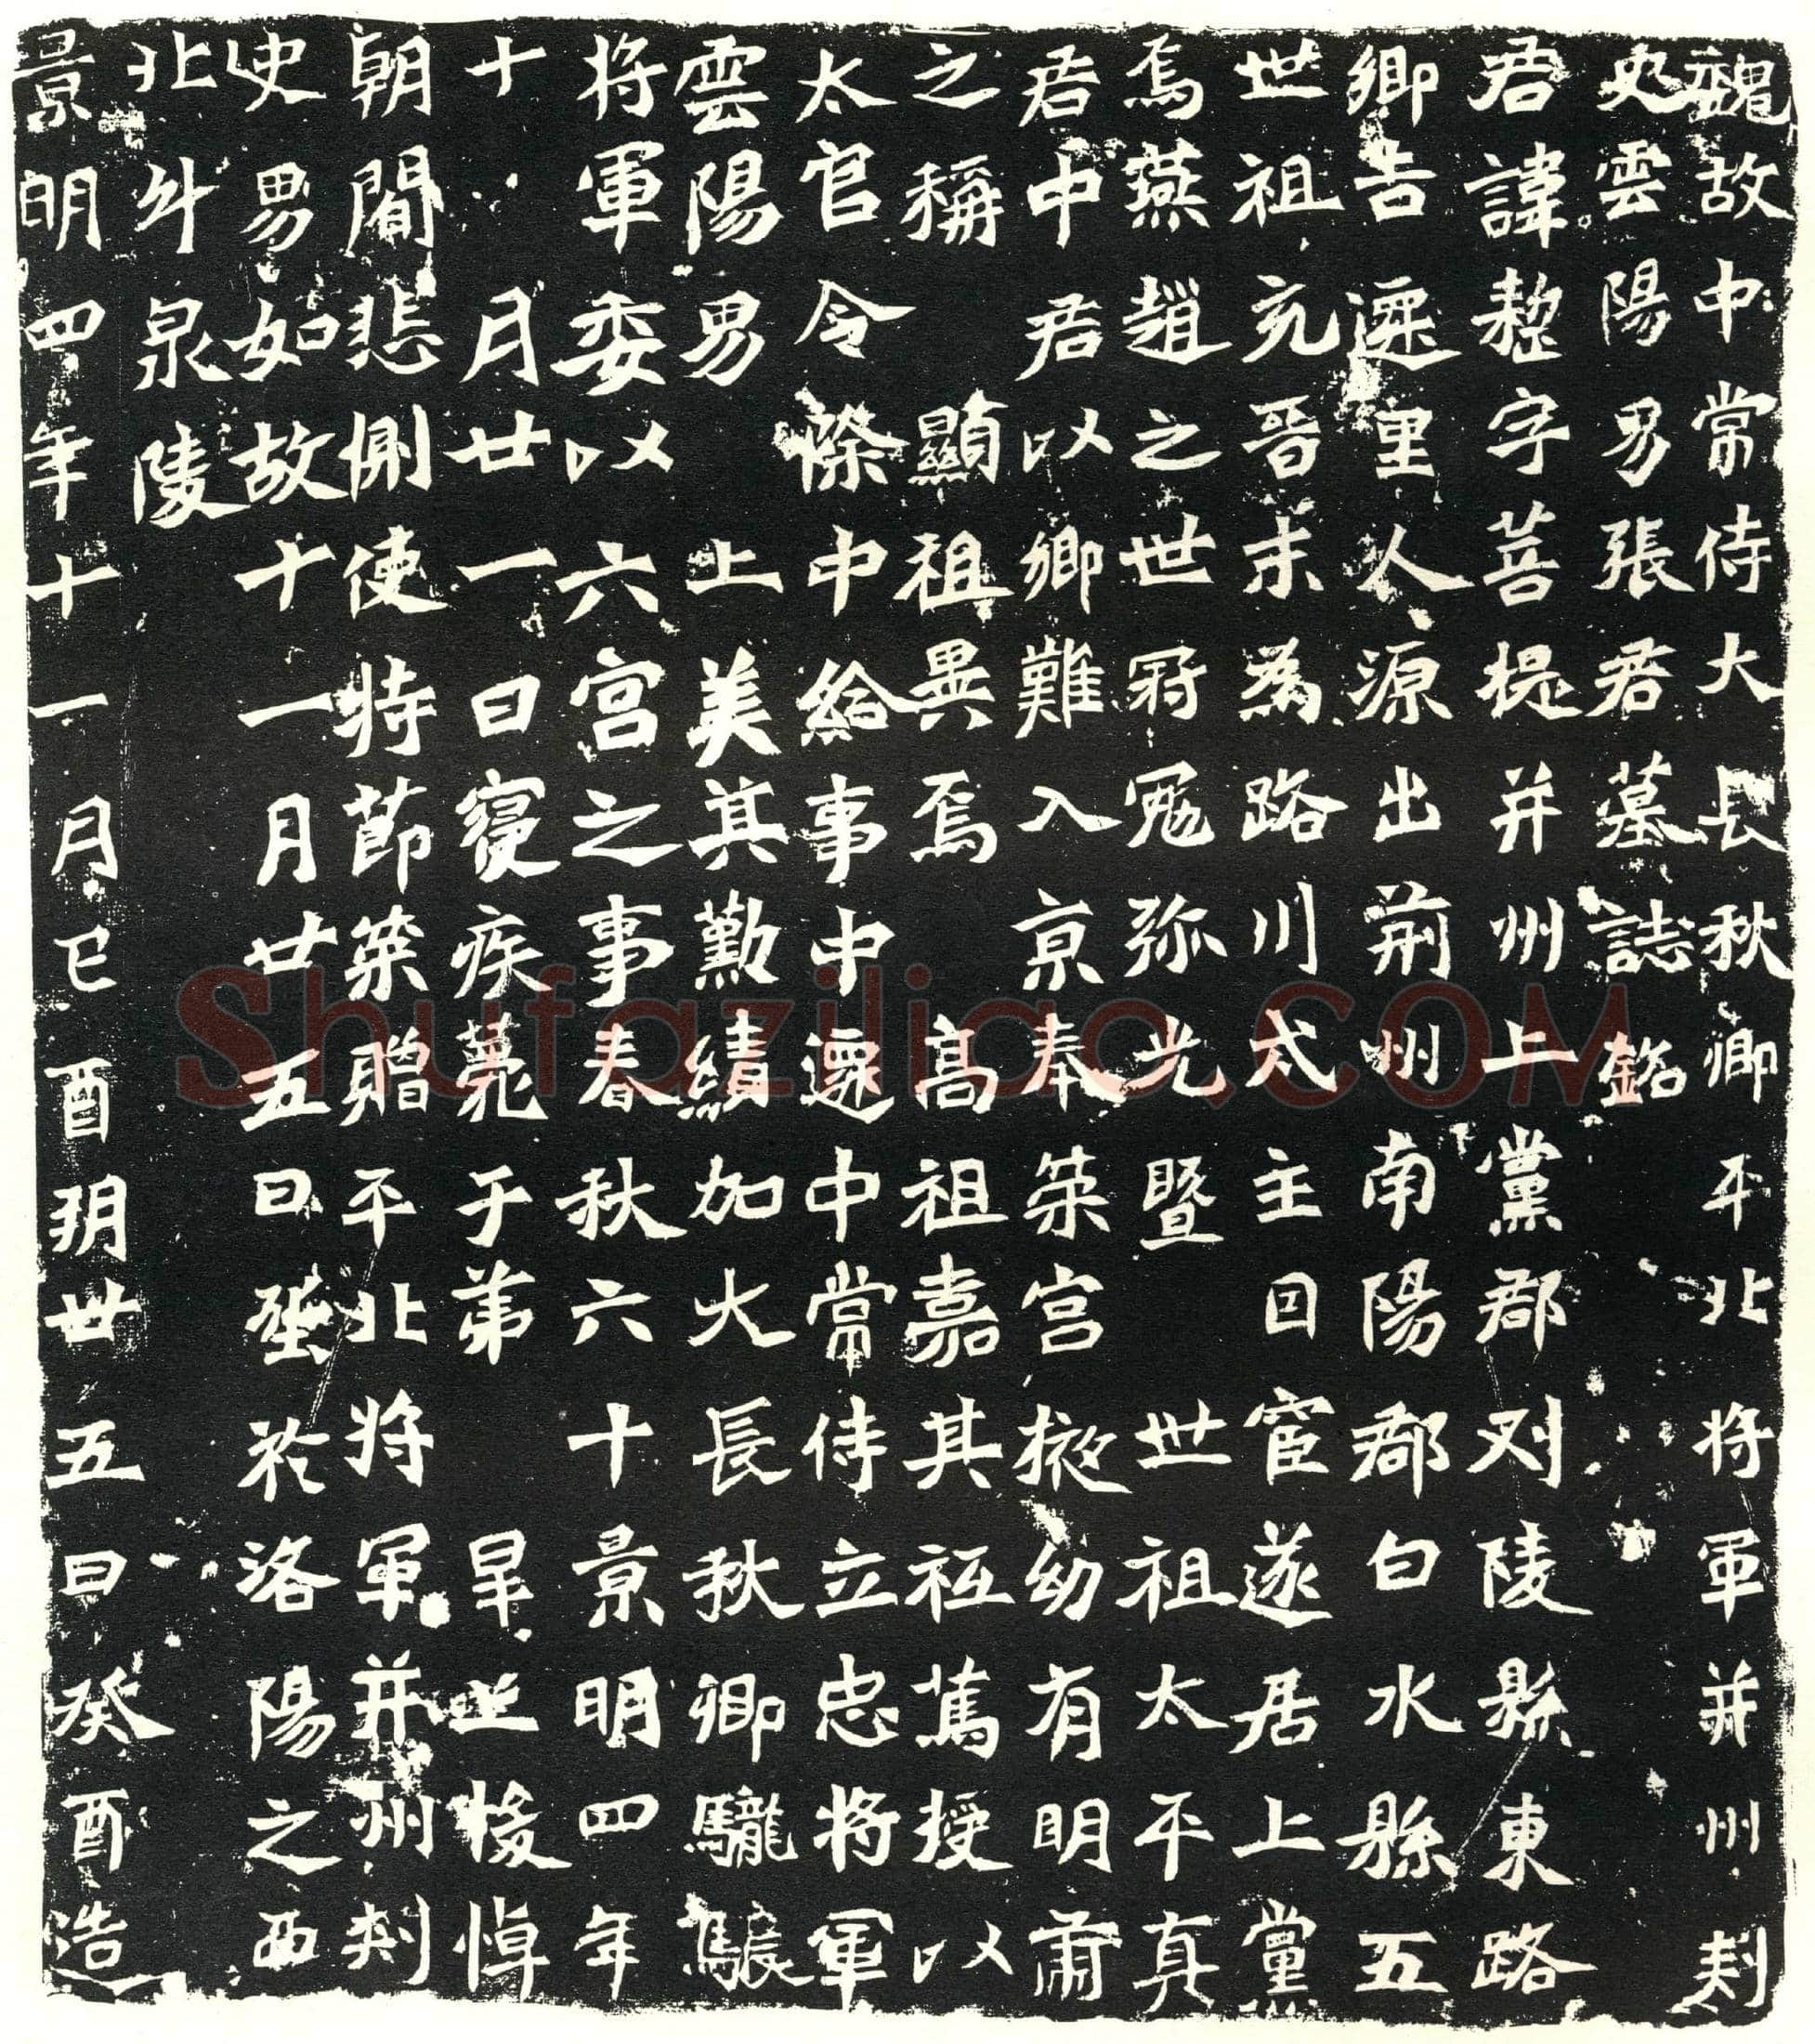 魏故中常侍大長秋卿平北將軍并州刾
史雲陽男張君墓誌銘
君諱整字菩提并州上黨郡刈陵縣東路
鄉吉遷里人源出荊州南陽郡白水縣五
世祖充晉末為路川太守主因宦遂居上黨
焉燕趙之世冠冕弥光暨世祖太平真
君中君以鄉難入京奉策宮掖幼有明肅
之稱顯祖異焉高祖嘉其祗篤授以
太官令除中給事中遷中常侍立忠將軍
雲陽男上美其勤績加大長秋卿驪驤
將軍委以六宮之事春秋六十景明四年
十月廿一日寢疾薨于第皇上悽悼
朝閽悲惻使持節策贈平北將軍并州刾
史男如故十一月廿五日塟於洛陽之西
北斗泉陵
景明四年十一月己酉玥廿五日癸酉造
Shufaziliao.COM